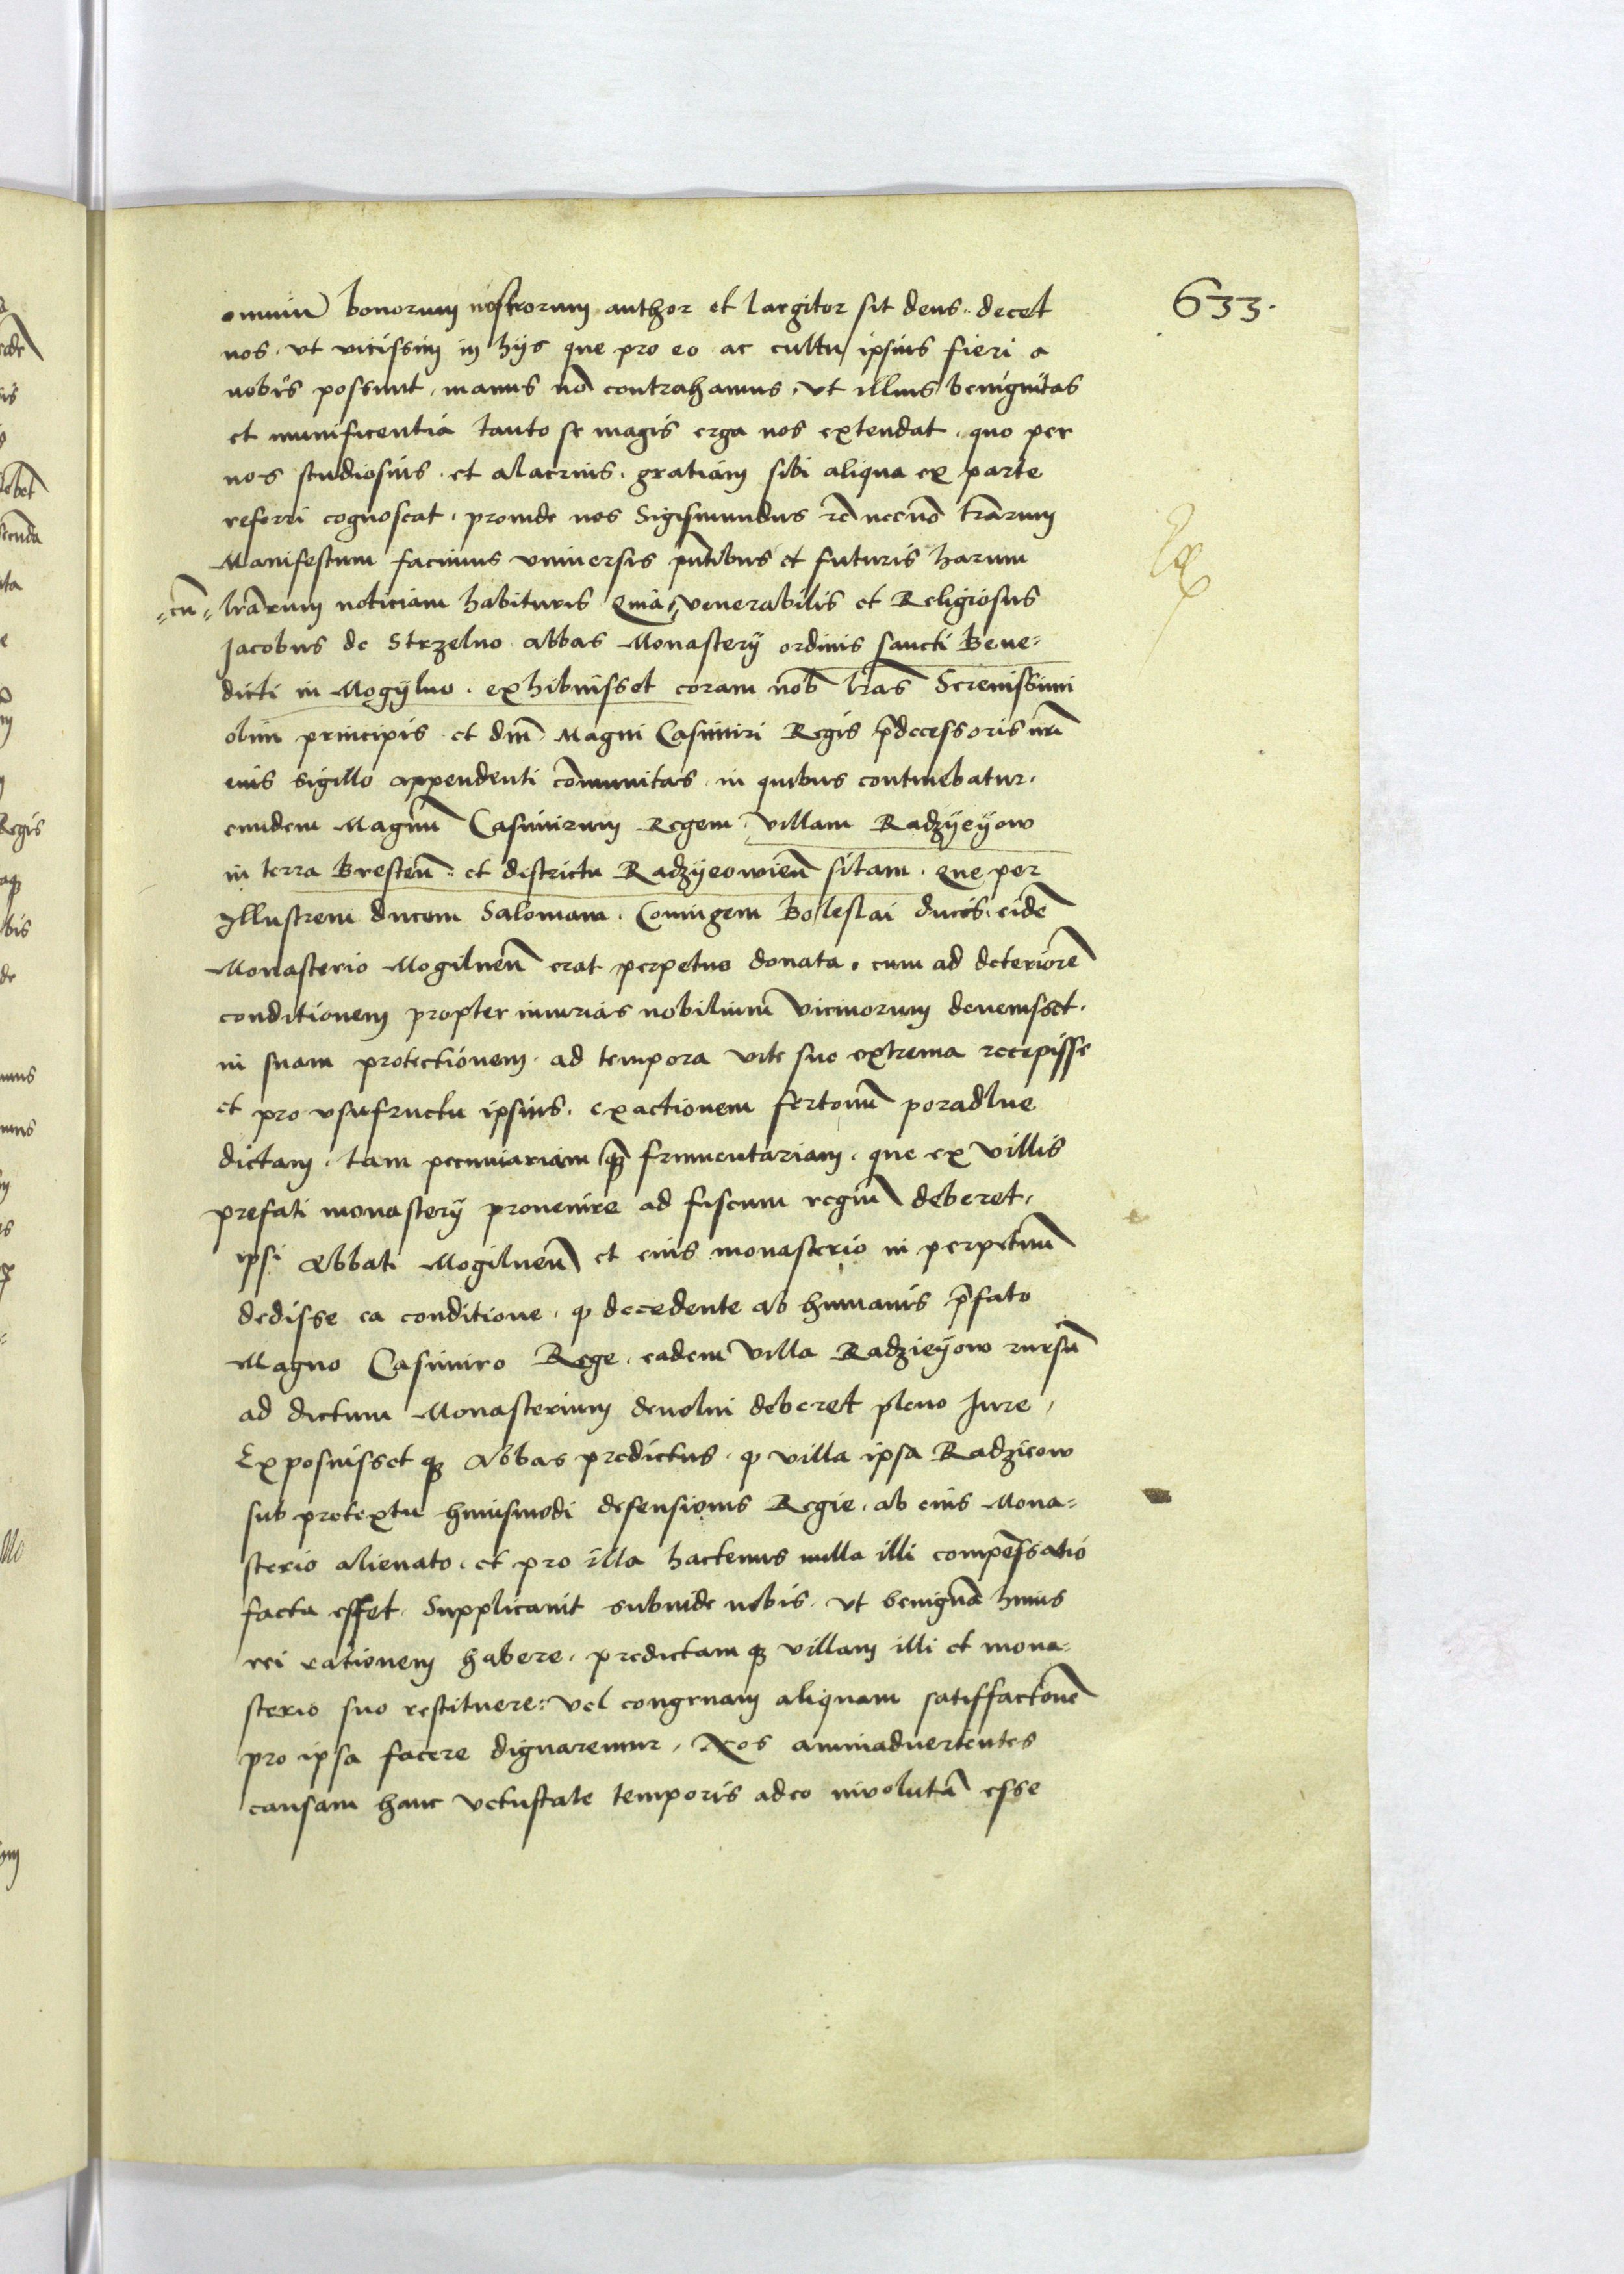 633.
omniũ bonorum nostrorum author et largitor sit deus. decet
nos. vt vicissim in hijs que pro eo ac cultu ipsius fieri a
nobis possunt. manus nõ contrahamus. vt illius benignitas
et munificentia tanto se magis erga nos extendat. quo per
nos studiosius. et alacrius. gratiam sibi aliqua ex parte
referri cognoscat. proinde nos Sigismundus rẽ necnõ trãrum
Manifestum facimus vniversis pñtibus et futuris harum
lrãrum noticiam habituris Quia =cũ= venerabilis et Religiosus
Jacobus de Strzelno abbas Monasterij ordinis sancti Bene=
dicti in Mogijlno. exhibuisset coram nob̃ lrãs Serenissimi
olim principis et dñi Magni Casimiri Regis p̃decessoris nrĩ
eius sigillo appendenti cõmunitas. in quibus continebatur.
eundem Magnũ Casimirum Regem. villam Radzyeyow
in terra Bresteñ. et districtu Radzyeowieñ sitam. que per
Illustrem ducem Salomam. Coniugem Boleslai ducis. eidẽ
Monasterio Mogilneñ erat perpetuo donata. cum ad deteriorẽ
conditionem propter iniurias nobilium vicinorum devenisset.
in suam protectionem. ad tempora vite sue extrema recepisse
et pro vsufructu ipsius. exactionem fertonũ poradlne
dictam. tam pecuniariam q̃ꝫ frumentariam. que ex villis
prefati monasterij provenire ad fiscum regiũ deberet.
ipsi Abbati Mogilneñ et eius monasterio in perpetuũ
dedisse ea conditione. ꝙ decedente ab humanis p̃fato
Magno Casimiro Rege. eadem villa Radzieyow rursũ
ad dictum Monasterium devolui deberet pleno Jure,
Exposuisset qꝫ Abbas predictus. ꝙ villa ipsa Radzieow
sub pretextu huiusmodi defensionis Regie. ab eius Mona=
sterio alienato. et pro illa hactenus nulla illi compẽsatio
facta esset. Supplicauit subinde nobis. vt benignã huius
rei rationem habere. predictam qꝫ villam illi et mona=
sterio suo restituere: vel congruam aliquam satisfactionẽ
pro ipsa facere dignaremur. Nos animadvertentes
causam hanc vetustate temporis adeo involutã esse